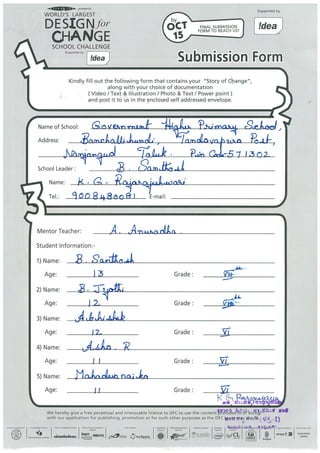 presents
WORLD'S LARGEST
DESIGN for
CHANGE
SCHOOL CHALLENGE
Supported by
!dea
by
OCT
15
FINAL SUBMISSION
FORM TO REACH US!
Supported by
!dea
Submission Form
Kindly fill out the following form that contains your "Story of Change",
along with your choice of documentation
(Video / Text & Illustration / Photo & Text / Power point)
and post it to us in the enclosed self addressed envelope.
Name of School: Government Higher Primary School,
Address: Banchallihundi, Tandavapura Post,
Nanjangud Taluk. Pin Code-571302
School Leader: B. Santhosh
Name: K. G. Rajarajeshwari
Tel.: 9008480081 E-mail:
Mentor Teacher: A. Anuradha.
Student Information:-
1) Name: B. Santhosh
Age: 13 Grade: VII
2) Name: B. Jyothi
Age: 12 Grade:
3) Name: Abhishek
Age: 12 Grade: VI
4) Name: Asha. R
Age: 11 Grade: VI
5) Name: Mahadevanaika
Age: 11 Grade: VI
We hereby give a free perpetual and irrevocable licence to DFC to use the content
with our application for publishing, promotion or for such other purposes as the DFC